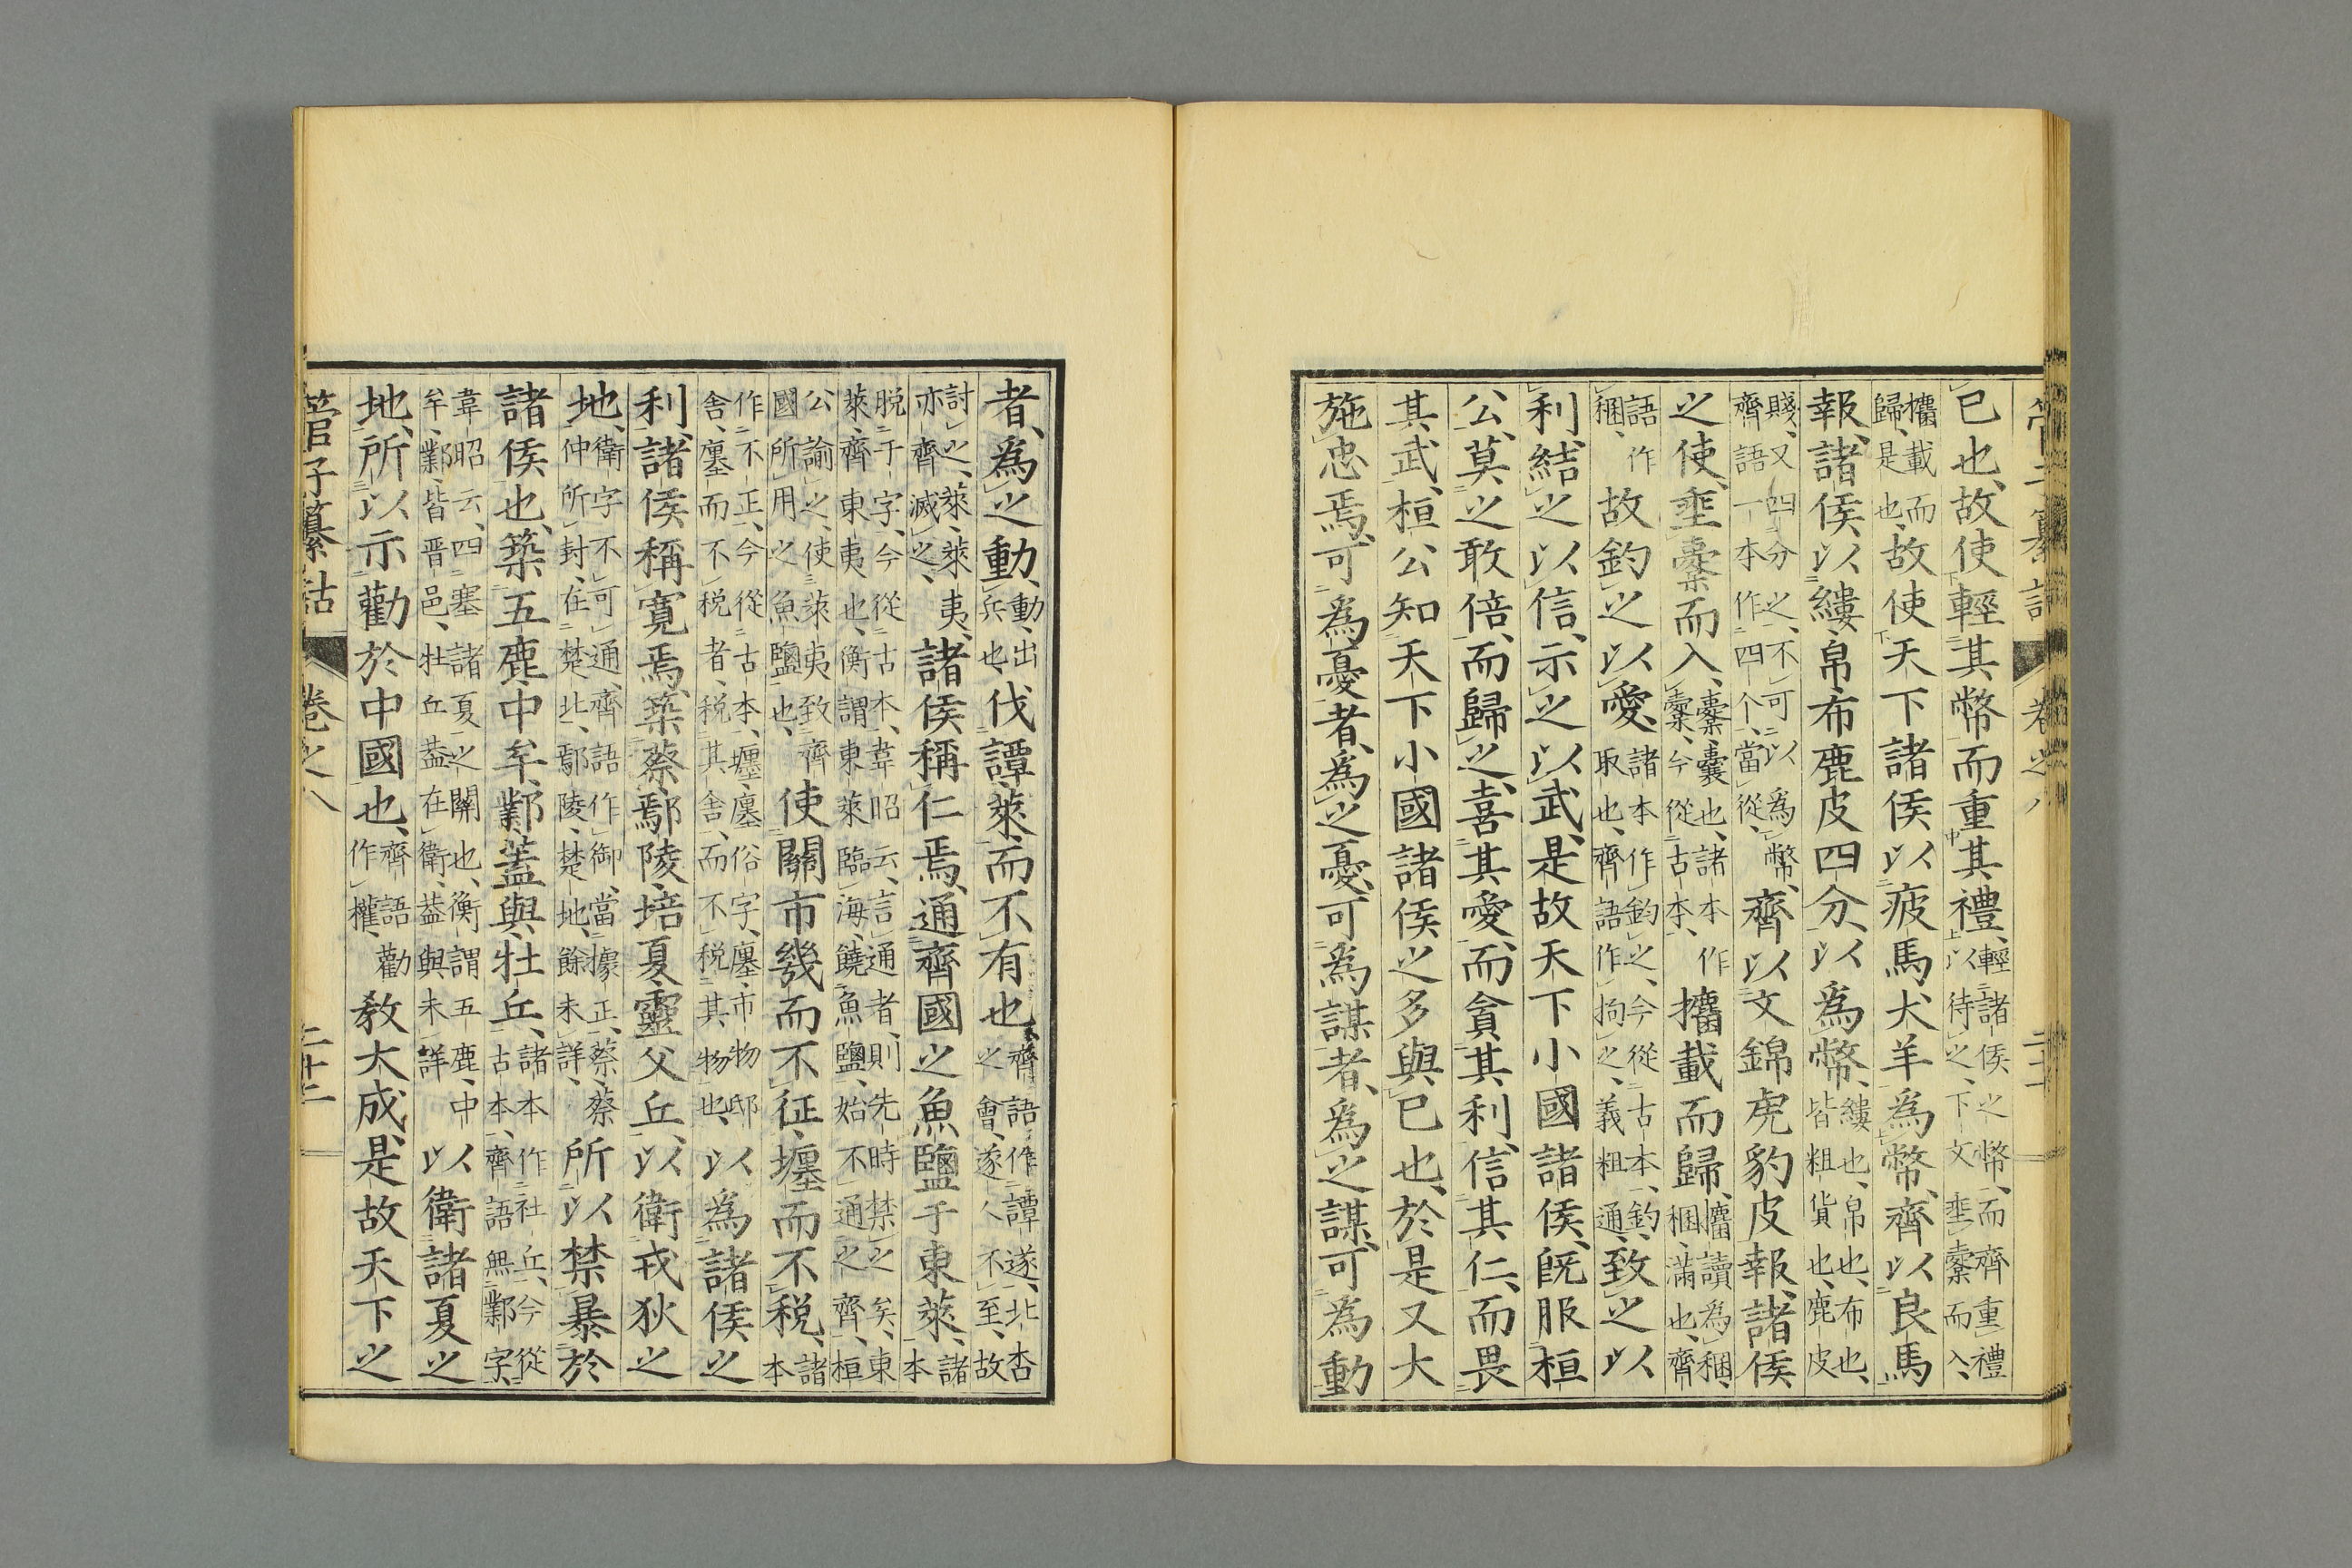 管子纂詁 卷之八
已也、故使輕其幣而重其禮、輕諸侯之幣、而齊重禮以待之、下文垂橐而入、
攟載而歸是也、故使天下諸侯以疲馬犬羊為幣、齊以良馬
報、諸侯以縷帛布鹿皮四分、以為幣、縷也、帛也、布也、皆粗貨也、鹿皮
賤、又四分之、不可以為幣、齊語一本作四个、當從、齊以文錦虎豹皮報、諸侯
之使、垂橐而入、橐、囊也、諸本作橐、今從古本、攟載而歸、攟讀為稇、稇、滿也、齊
語作稇、故釣之以愛、諸本作鈞之、今從古本、釣、取也、齊語作拘之、義粗通、致之以
利、結之以信、示之以武、是故天下小國諸侯、既服桓
公、莫之敢倍、而歸之、喜其愛、而貪其利、信其仁、而畏
其武、桓公知天下小國諸侯之多與已也、於是又大
施忠焉、可為憂者、為之憂、可為謀者、為之謀、可為動
者、為之動、動、出兵也、伐譚萊、而不有也、齊語作譚遂、北杏之會、遂人不至、故
討之、萊、萊夷、亦齊滅之、諸侯稱仁焉、通齊國之魚鹽于東萊、諸本
脱于字、今從古本、韋昭云、言通者、則先時禁之矣、東萊、齊東夷也、衡謂東萊臨海、饒魚鹽、始不通之齊、桓
公諭之、使萊夷致齊國所用之魚鹽也、使關市幾而不征、壥而不税、諸本
作不正、今從古本、壥、廛俗字、廛、市物邸舍、廛而不税者、税其舍、而不税其物也、以為諸侯之
利、諸侯稱寛焉、築蔡鄢陵培夏靈父丘、以衛戎狄之
地、衛字不可通、齊語作御、當據正、蔡、蔡仲所封、在楚北、鄢陵、楚地、餘未詳、所以禁暴於
諸侯也、築五鹿中牟鄴蓋與牡丘、諸本作社丘、今從古本、齊語無鄴字、
韋昭云、四塞諸夏之關也、衡謂五鹿、中牟、鄴、皆晋邑、牡丘葢在衛、葢與未詳、以衛諸夏之
地、所以示勸於中國也、齊語勸作權、教大成、是故天下之
管子纂詁 卷之八 二十二